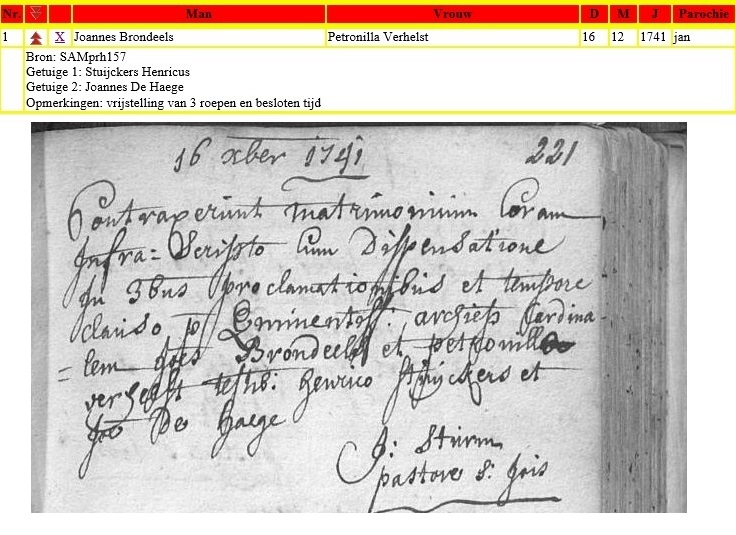 Nr. Man Vrouw D M J Parochie
1 X Joannes Brondeels Petronilla Verhelst 16 12 1741 jan
Bron: SAMprh157
Getuige 1: Stuijckers Henricus
Getuige 2: Joannes De Haege
Opmerkingen: vrijstelling van 3 roepen en besloten tijd
16 xber 1741 221
Contraxerunt matrimonium Coram
Infra = Scripto Cum Dispensatione
In 3bus proclamationibus et tempore
clauso p Eminentiss: archiep Cardina
= lem Joes Brondeels et petronilla
verhelst testib: henrico stuyckers et
Joe De haege
J: Sturm
pastore S: Jois